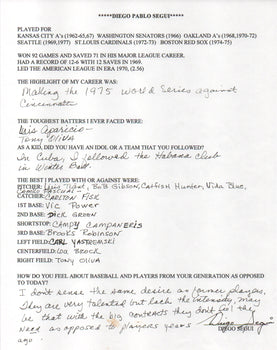 *****DIEGO PABLO SEGUI*****
PLAYED FOR
KANSAS CITY A's (1962-65,67) WASHINGTON SENATORS (1966) OAKLAND A's (1968,1970-72)
SEATTLE (1969,1977) ST.LOUIS CARDINALS (1972-73) BOSTON RED SOX (1974-75)
WON 92 GAMES AND SAVED 71 IN HIS MAJOR LEAGUE CAREER.
HAD A RECORD OF 12-6 WITH 12 SAVES IN 1969.
LED THE AMERICAN LEAGUE IN ERA 1970, (2.56)
THE HIGHLIGHT OF MY CAREER WAS:
Making the 1975 World Series against
Cincinnati
THE TOUGHEST BATTERS I EVER FACED WERE:
Luis Aparicio-
Tony Oliva
AS A KID, DID YOU HAVE AN IDOL OR A TEAM THAT YOU FOLLOWED?
In Cuba, I followed the Habana club
in Winter Ball.
THE BEST I PLAYED WITH OR AGAINST WERE:
PITCHER: Luis Tiant, Bob Gibson, Catfish Hunter, Vida Blue,
Camilo Pascual-
CATCHER: Carlton Fisk
1ST BASE: Vic Power
2ND BASE: Dick Green
SHORTSTOP: Campy Campaneris
3RD BASE: Brooks Robinson
LEFT FIELD: Carl Yastremski
CENTERFIELD: Lou Brock
RIGHT FIELD: Tony Oliva
HOW DO YOU FEEL ABOUT BASEBALL AND PLAYERS FROM YOUR GENERATION AS OPPOSED
TO TODAY?
I don't sense the same desire as former players.
They are very talented but lack the intensity, may
be that with the big contracts they don't feel the
need as opposed to players years
ago.
Diego Segui
DIEGO SEGUI